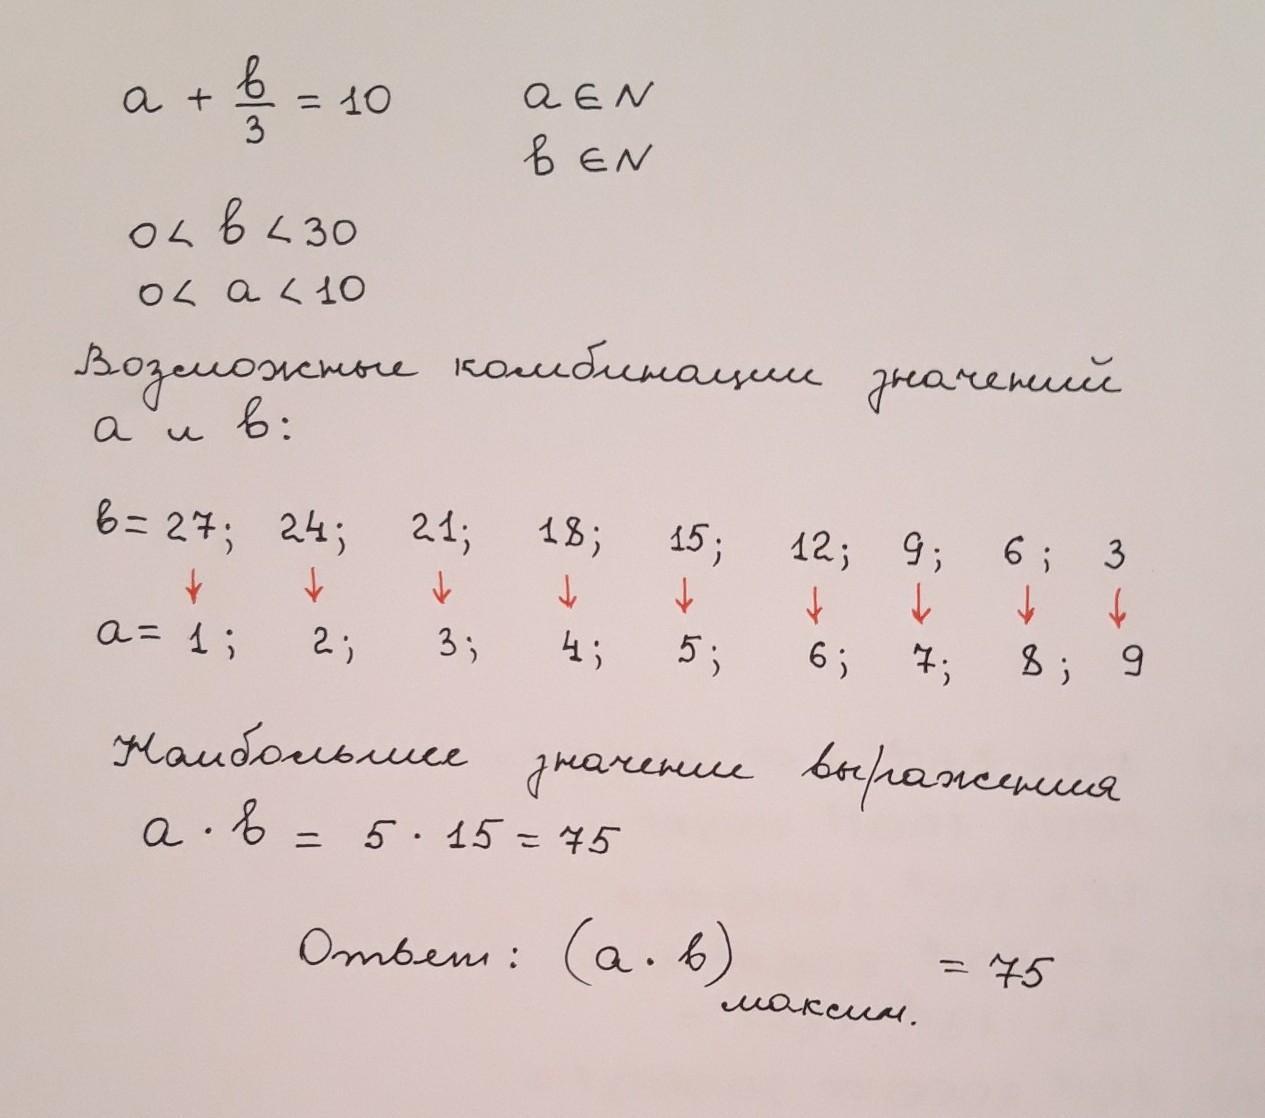 a + в/3 = 10 a ∈ N
в ∈ N
0 < в < 30
0 < a < 10
Возможные комбинации значений
а и в:
в = 27; 24; 21; 18; 15; 12; 9; 6; 3
↓ ↓ ↓ ↓ ↓ ↓ ↓ ↓ ↓
a = 1; 2; 3; 4; 5; 6; 7; 8; 9
Наибольшее значение выражения
a · в = 5 · 15 = 75
Ответ: (a · в) максим. = 75